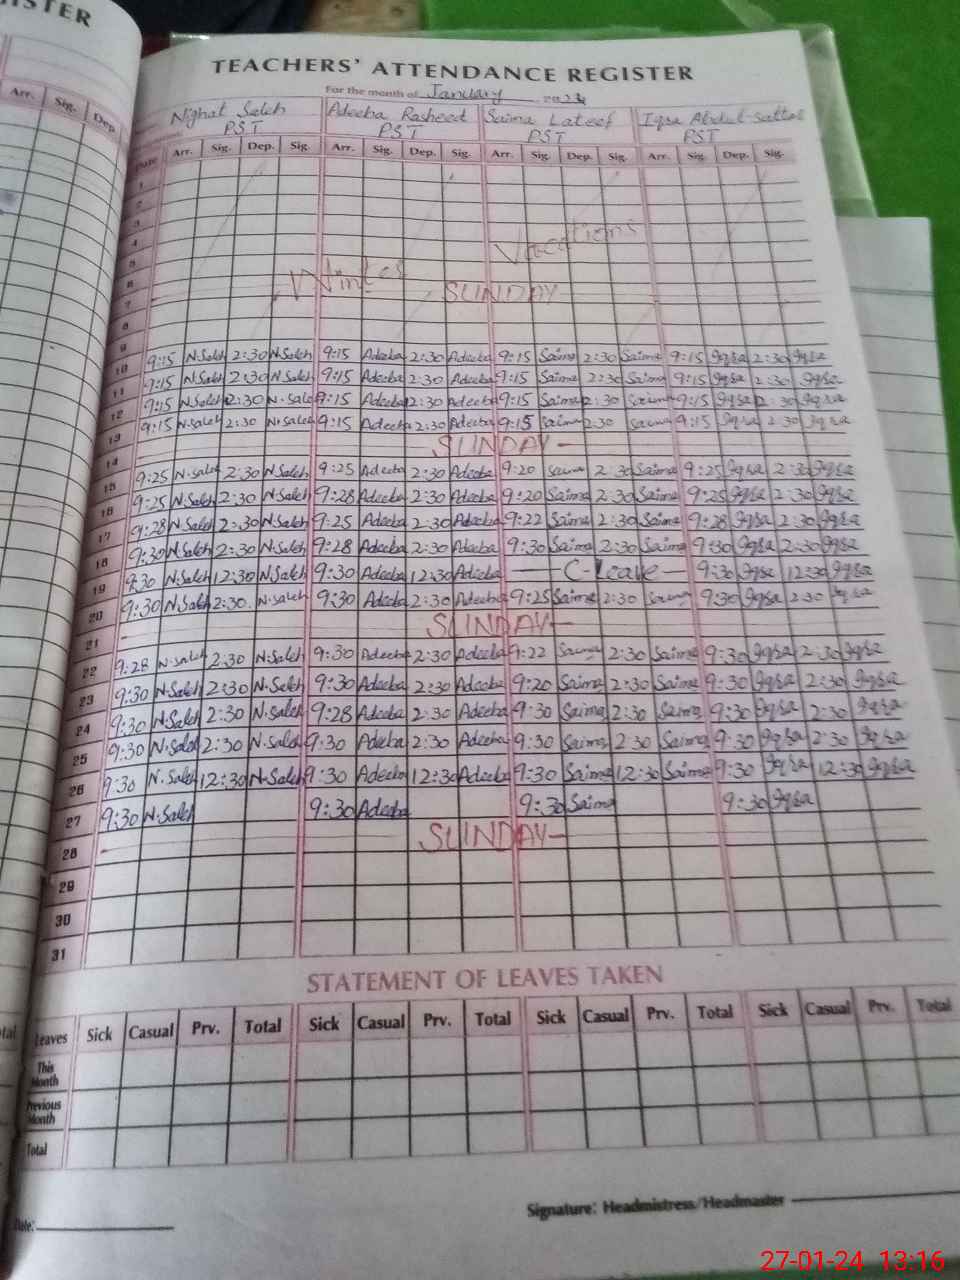 ISTER
Arr. Sig. Dep.
TEACHERS' ATTENDANCE REGISTER
For the month of January 2024
Nighat Saleh Adeeba Rasheed Saima Lateef Iqra Abdul-Sattar
PST PST PST PST
Date Arr. Sig. Dep. Sig. Arr. Sig. Dep. Sig. Arr. Sig. Dep. Sig. Arr. Sig. Dep. Sig.
1
2
3
4 Vacations
5
6 Winter
7 SUNDAY
8
9 9:15 N.Saleh 2:30 N.Saleh 9:15 Adeeba 2:30 Adeeba 9:15 Saima 2:30 Saima 9:15 Iqra 2:30 Iqra
10 9:15 N.Saleh 2:30 N.Saleh 9:15 Adeeba 2:30 Adeeba 9:15 Saima 2:30 Saima 9:15 Iqra 2:30 Iqra
11 9:15 N.Saleh 2:30 N.Saleh 9:15 Adeeba 2:30 Adeeba 9:15 Saima 2:30 Saima 9:15 Iqra 2:30 Iqra
12 9:15 N.Saleh 2:30 N.Saleh 9:15 Adeeba 2:30 Adeeba 9:15 Saima 2:30 Saima 9:15 Iqra 2:30 Iqra
13 SUNDAY
14 9:25 N.Saleh 2:30 N.Saleh 9:25 Adeeba 2:30 Adeeba 9:20 Saima 2:30 Saima 9:25 Iqra 2:30 Iqra
15 9:25 N.Saleh 2:30 N.Saleh 9:28 Adeeba 2:30 Adeeba 9:20 Saima 2:30 Saima 9:25 Iqra 2:30 Iqra
16 9:28 N.Saleh 2:30 N.Saleh 9:25 Adeeba 2:30 Adeeba 9:22 Saima 2:30 Saima 9:28 Iqra 2:30 Iqra
17 9:30 N.Saleh 2:30 N.Saleh 9:28 Adeeba 2:30 Adeeba 9:30 Saima 2:30 Saima 9:30 Iqra 2:30 Iqra
18 9:30 N.Saleh 12:30 N.Saleh 9:30 Adeeba 12:30 Adeeba C-Leave 9:30 Iqra 12:30 Iqra
19 9:30 N.Saleh 2:30 N.Saleh 9:30 Adeeba 2:30 Adeeba 9:25 Saima 2:30 Saima 9:30 Iqra 2:30 Iqra
20 SUNDAY
21
22 9:28 N.Saleh 2:30 N.Saleh 9:30 Adeeba 2:30 Adeeba 9:22 Saima 2:30 Saima 9:30 Iqra 2:30 Iqra
23 9:30 N.Saleh 2:30 N.Saleh 9:30 Adeeba 2:30 Adeeba 9:20 Saima 2:30 Saima 9:30 Iqra 2:30 Iqra
24 9:30 N.Saleh 2:30 N.Saleh 9:28 Adeeba 2:30 Adeeba 9:30 Saima 2:30 Saima 9:30 Iqra 2:30 Iqra
25 9:30 N.Saleh 2:30 N.Saleh 9:30 Adeeba 2:30 Adeeba 9:30 Saima 2:30 Saima 9:30 Iqra 2:30 Iqra
26 9:30 N.Saleh 12:30 N.Saleh 9:30 Adeeba 12:30 Adeeba 9:30 Saima 12:30 Saima 9:30 Iqra 12:30 Iqra
27 9:30 N.Saleh 9:30 Adeeba 9:30 Saima 9:30 Iqra
28 SUNDAY
29
30
31
STATEMENT OF LEAVES TAKEN
Leaves Sick Casual Prv. Total Sick Casual Prv. Total Sick Casual Prv. Total Sick Casual Prv. Total
This Month
Previous Month
Total
Signature: Headmistress/Headmaster
Date:
27-01-24 13:16